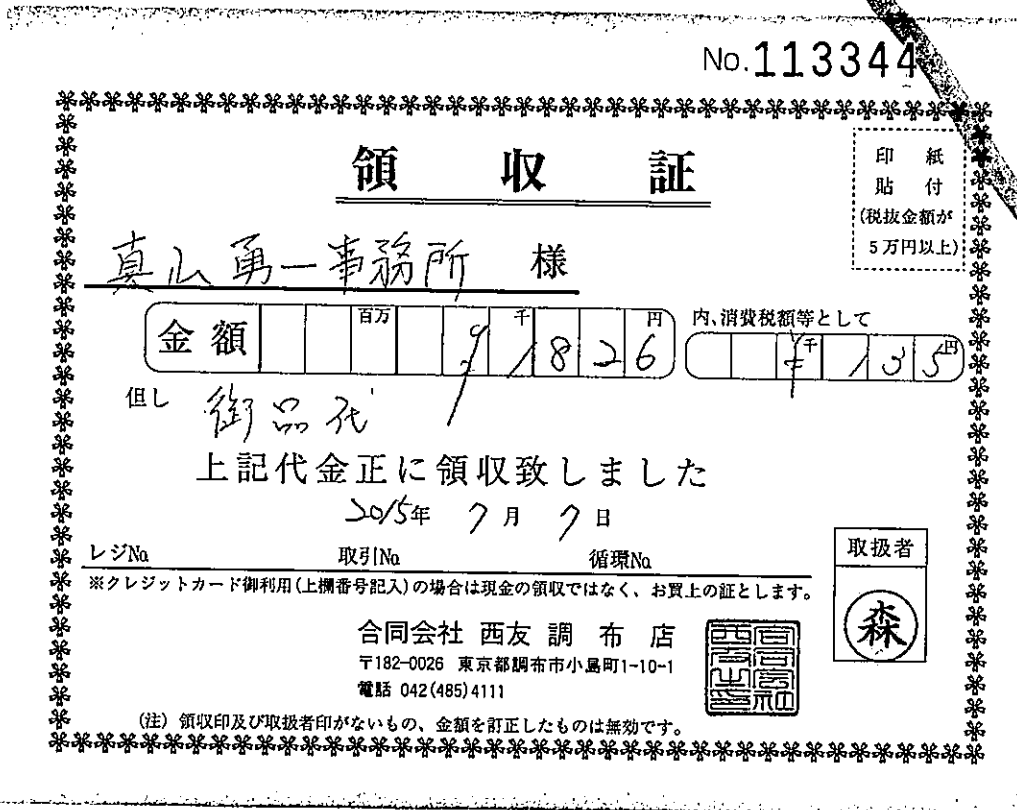 No.113344
領収証
印紙
貼付
(税抜金額が
5万円以上)
真山勇一事務所 様
金額 百万 千 円 ¥1826
内、消費税額等として
千 円 ¥135
但し 御品代
上記代金正に領収致しました
2015年 7月 7日
レジNo. 取引No. 循環No.
※クレジットカード御利用(上欄番号記入)の場合は現金の領収ではなく、お買上の証とします。
取扱者
森
合同会社 西友 調布店
〒182-0026 東京都調布市小島町1-10-1
電話 042(485)4111
(注) 領収印及び取扱者印がないもの、金額を訂正したものは無効です。